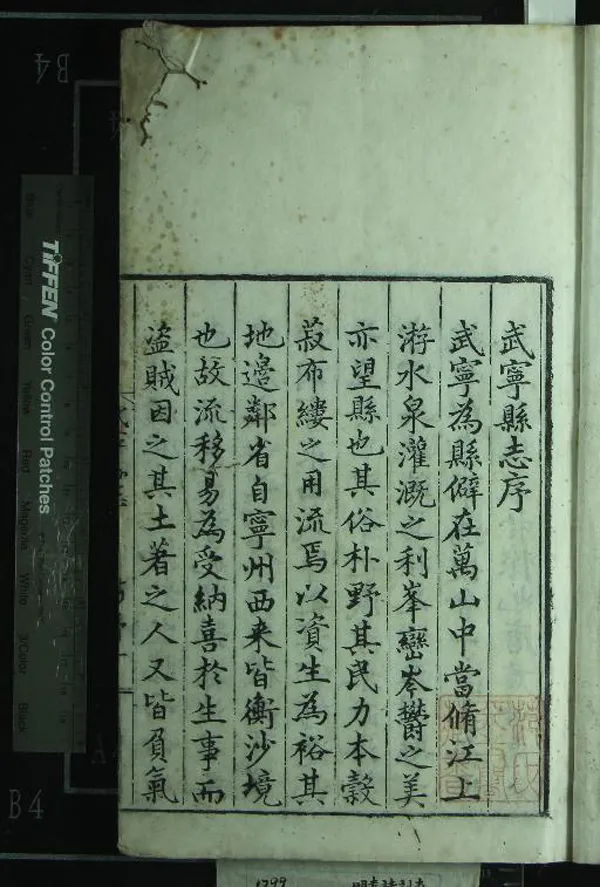 武寧縣志序
武寧為縣僻在萬山中當脩江上
游水泉灌溉之利峯巒岑鬱之美
亦望縣也其俗朴野其民力本穀
菽布縷之用流焉以資生為裕其
地邉鄰省自寧州西来皆衡沙境
也故流移易為受納喜於生事而
盗賊因之其土著之人又皆負氣
TIFFEN Color Control Patches
Blue
Cyan
Green
Yellow
Red
Magenta
White
3/Color
Black
B4
B4